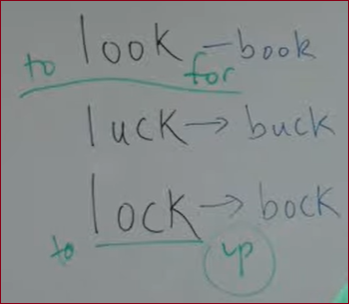 to look for - book
luck → buck
to lock up → bock